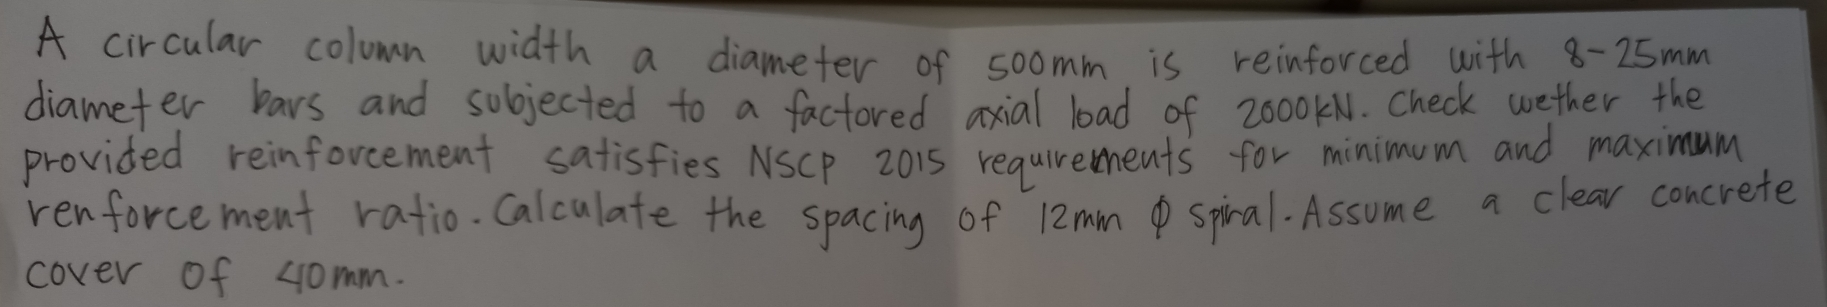 A circular column width a diameter of 500mm is reinforced with 8-25mm
diameter bars and subjected to a factored axial load of 2000kN. Check wether the
provided reinforcement satisfies NSCP 2015 requirements for minimum and maximum
renforcement ratio. Calculate the spacing of 12mm φ spiral. Assume a clear concrete
cover of 40mm.